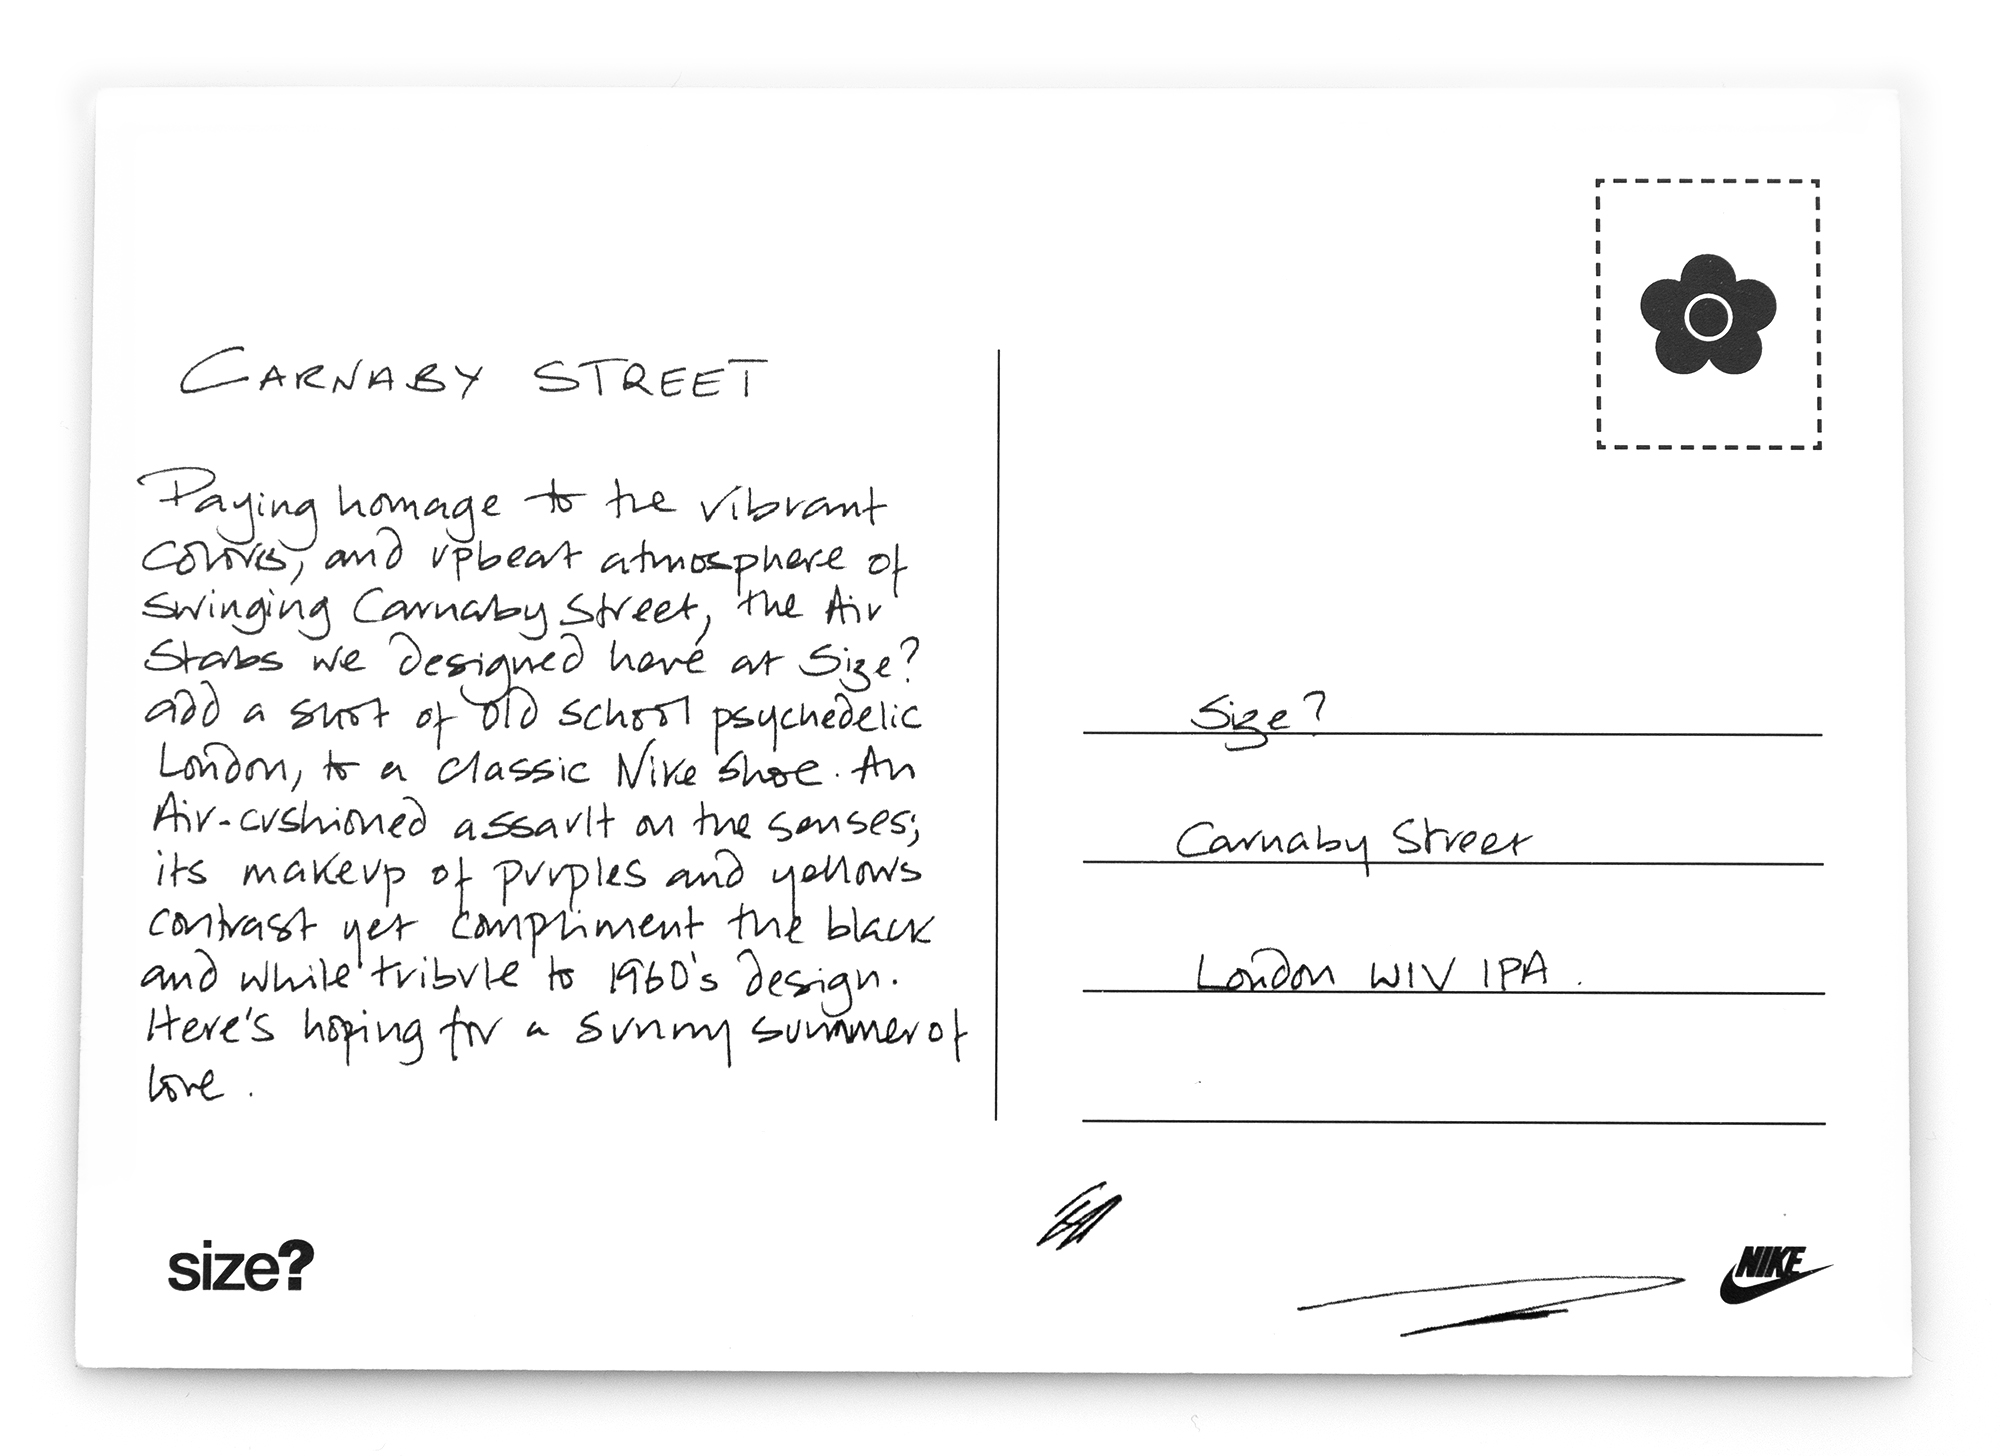 CARNABY STREET
Paying homage to the vibrant
colours, and upbeat atmosphere of
swinging Carnaby Street, the Air
Stabs we designed here at Size?
add a shot of old school psychedelic
London, to a classic Nike shoe. An
Air-cushioned assault on the senses;
its makeup of purples and yellows
contrast yet compliment the black
and white tribute to 1960's design.
Here's hoping for a sunny summer of
love.
Size?
Carnaby Street
London W1V 1PA.
size?
NIKE